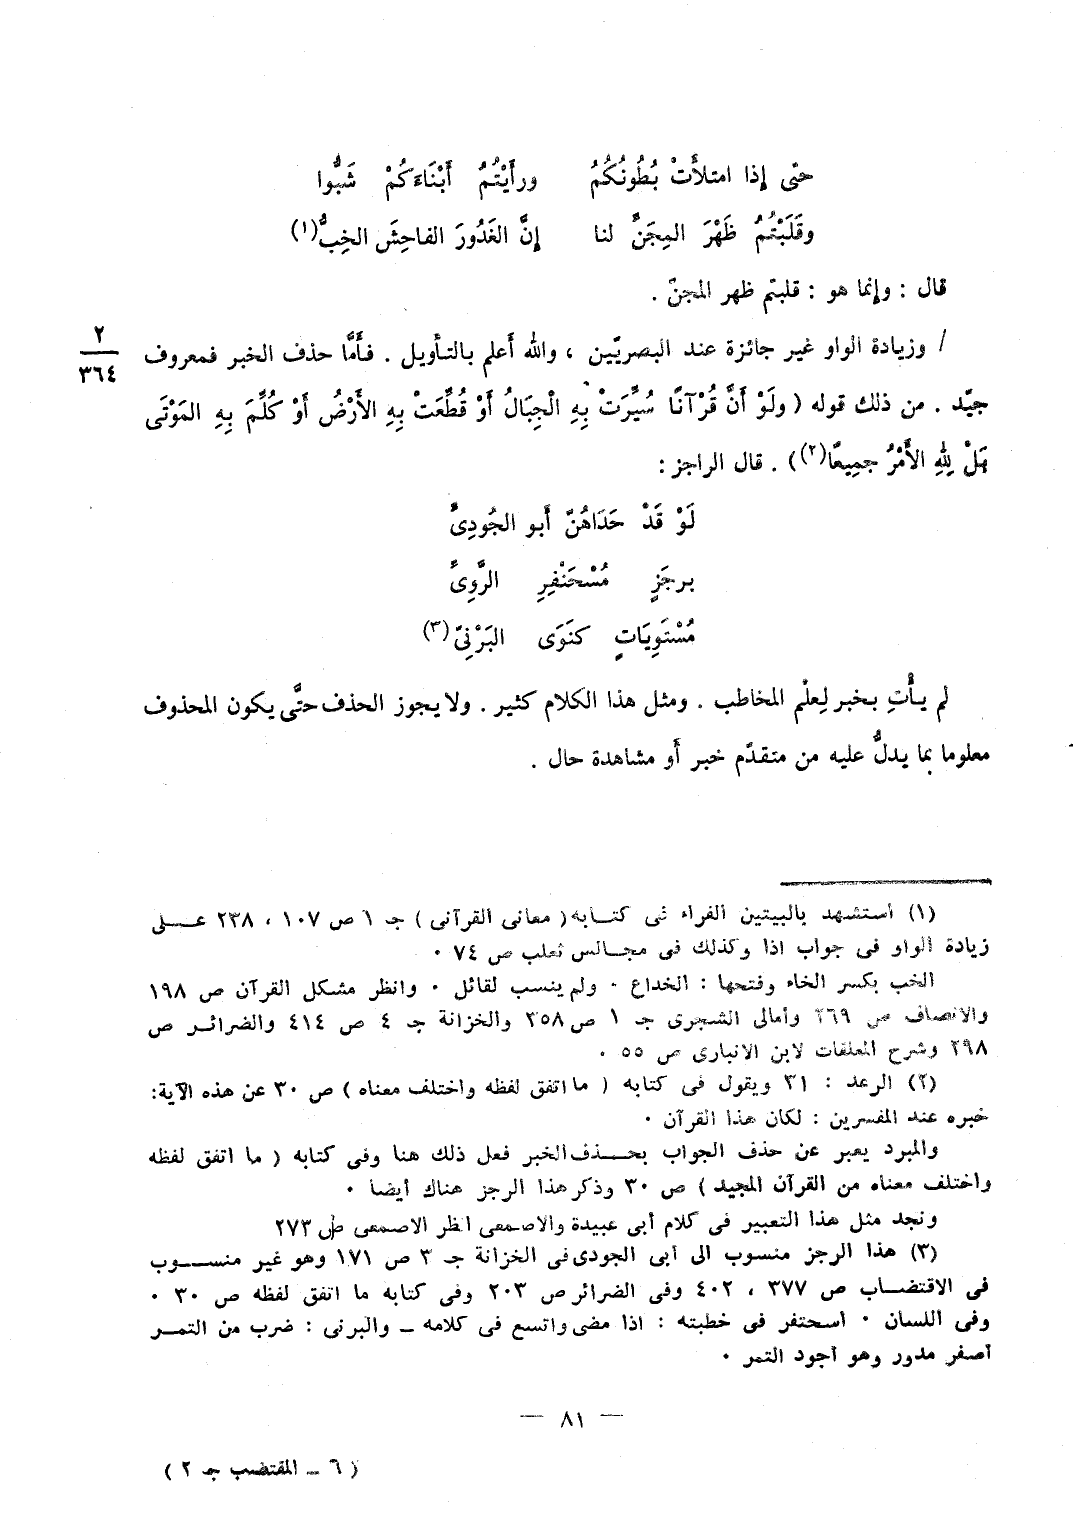 حتّى إذا امتلأَتْ بُطُونُكُمُ ورأَيْتُمُ أَبْنَاءَكُمْ شَبُّوا
وقَلَبْتُمُ ظَهْرَ المِجَنِّ لنا إنَّ الغَدُورَ الفاحِشَ الخِبُّ(١)
قال : وإنما هو : قلبتم ظهر المجنّ .
/ وزيادة الواو غير جائزة عند البصريّين ، والله أَعلم بالتأويل . فأَمَّا حذف الخبر فمعروف
٢
٣٦٤
جيّد . من ذلك قوله ( ولَوْ أَنَّ قُرْآنًا سُيِّرَتْ بِهِ الْجِبَالُ أَوْ قُطِّعَتْ بِهِ الأَرْضُ أَوْ كُلِّمَ بِهِ المَوْتَى
بَلْ لِلهِ الأَمْرُ جميعًا(٢)) . قال الراجز :
لَوْ قَدْ حَدَاهُنّ أَبو الجُودِىِّ
برجَزٍ مُسْحَنْفِرِ الرَّوِىِّ
مُسْتَوِيَاتٍ كنَوَى البَرْنِىّ(٣)
لم يأْتِ بخبر لِعلْم المخاطب . ومثل هذا الكلام كثير . ولا يجوز الحذف حتَّى يكون المحذوف
معلوما بما يدلُّ عليه من متقدّم خبر أَو مشاهدة حال .
(١) استشهد بالبيتين الفراء فى كتابه ( معانى القرآنى ) جـ ١ ص ١٠٧ ، ٢٣٨ عـلى
زيادة الواو فى جواب اذا وكذلك فى مجالس ثعلب ص ٧٤ ٠
الخب بكسر الخاء وفتحها : الخداع ٠ ولم ينسب لقائل ٠ وانظر مشكل القرآن ص ١٩٨
والانصاف ص ٢٦٩ وأمالى الشجرى جـ ١ ص ٣٥٨ والخزانة جـ ٤ ص ٤١٤ والضرائر ص
٢٩٨ وشرح المعلقات لابن الانبارى ص ٥٥ ٠
(٢) الرعد : ٣١ ويقول فى كتابه ( ما اتفق لفظه واختلف معناه ) ص ٣٠ عن هذه الآية:
خبره عند المفسرين : لكان هذا القرآن ٠
والمبرد يعبر عن حذف الجواب بحـذف الخبر فعل ذلك هنا وفى كتابه ( ما اتفق لفظه
واختلف معناه من القرآن المجيد ) ص ٣٠ وذكر هذا الرجز هناك أيضا ٠
ونجد مثل هذا التعبير فى كلام أبى عبيدة والاصمعى انظر الاصمعى ص ٢٧٣
(٣) هذا الرجز منسوب الى أبى الجودى فى الخزانة جـ ٣ ص ١٧١ وهو غير منسـوب
فى الاقتضـاب ص ٣٧٧ ، ٤٠٢ وفى الضرائر ص ٢٠٣ وفى كتابه ما اتفق لفظه ص ٣٠ ٠
وفى اللسان ٠ اسحتفر فى خطبته : اذا مضى واتسع فى كلامه ــ والبرنى : ضرب من التمـر
أصفر مدور وهو أجود التمر ٠
— ٨١ —
( ٦ ــ المقتضب جـ ٢ )